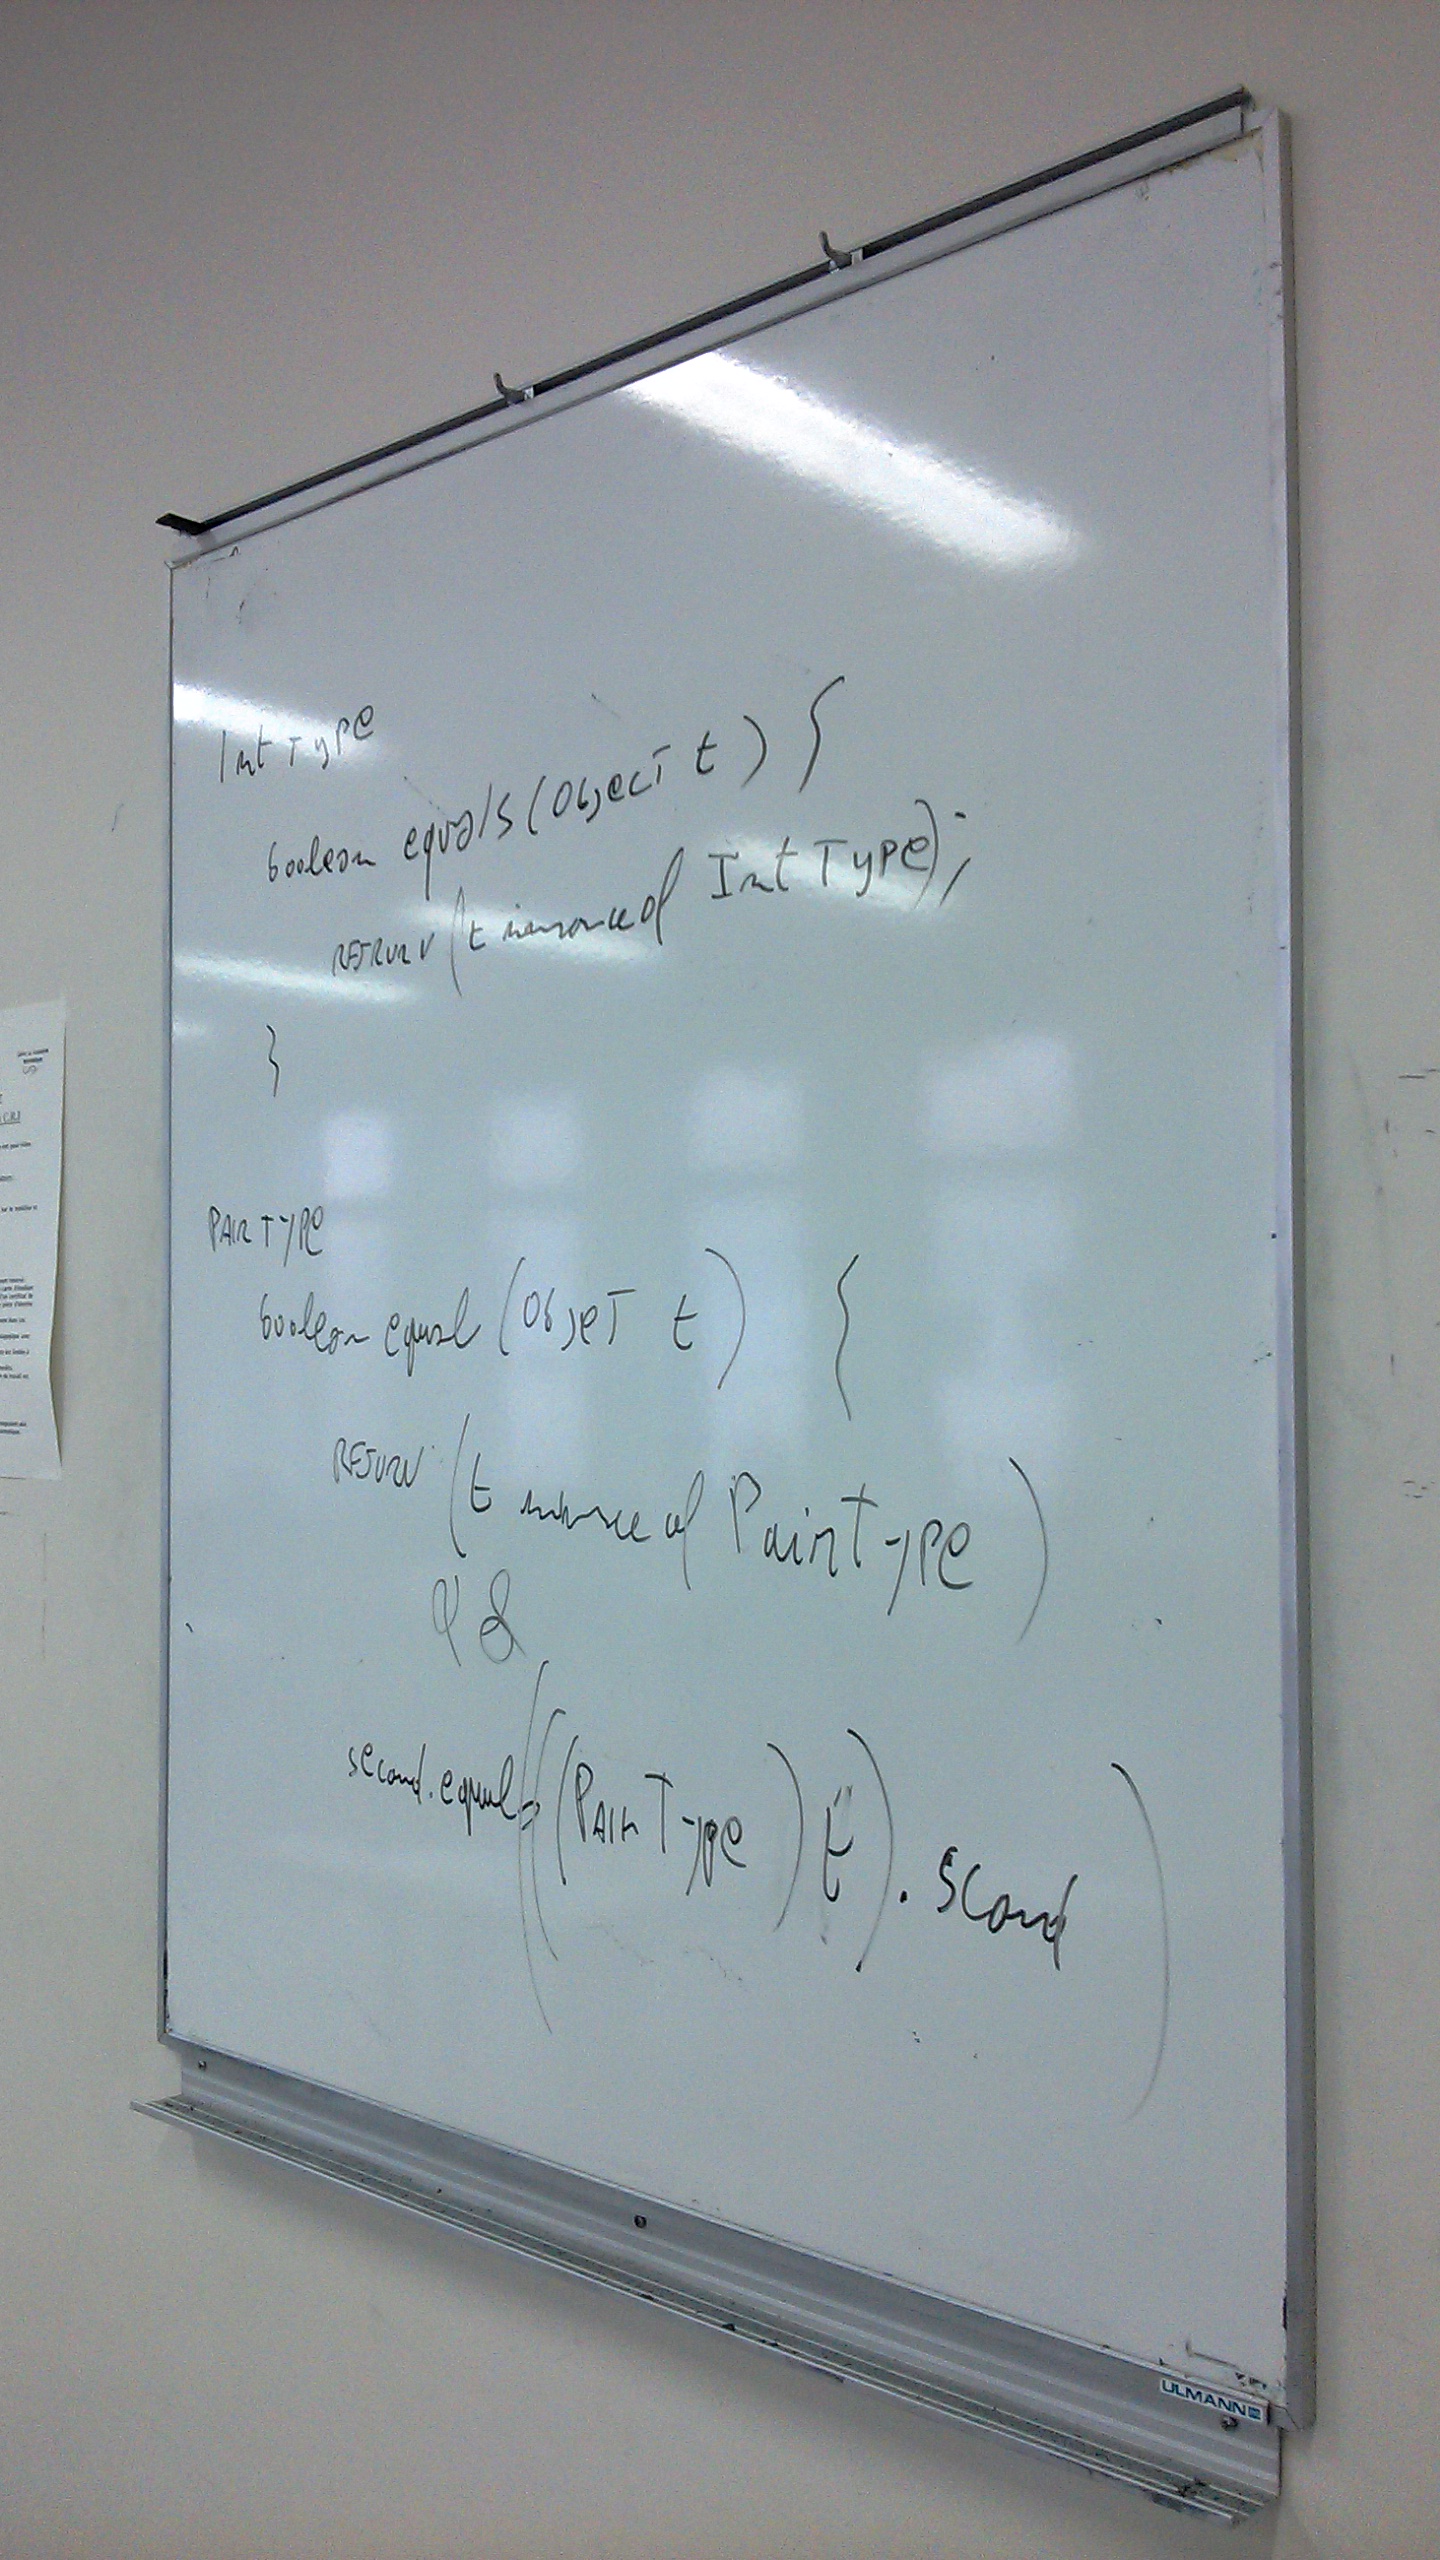 Int Type
boolean equals (Object t) {
RETURN (t instanceof Int Type);
}
PAIR TYPE
boolean equal (Objet t) {
RETURN (t instanceof PairType)
&&
second.equals (((PAIR Type) t).second)
ULMANN